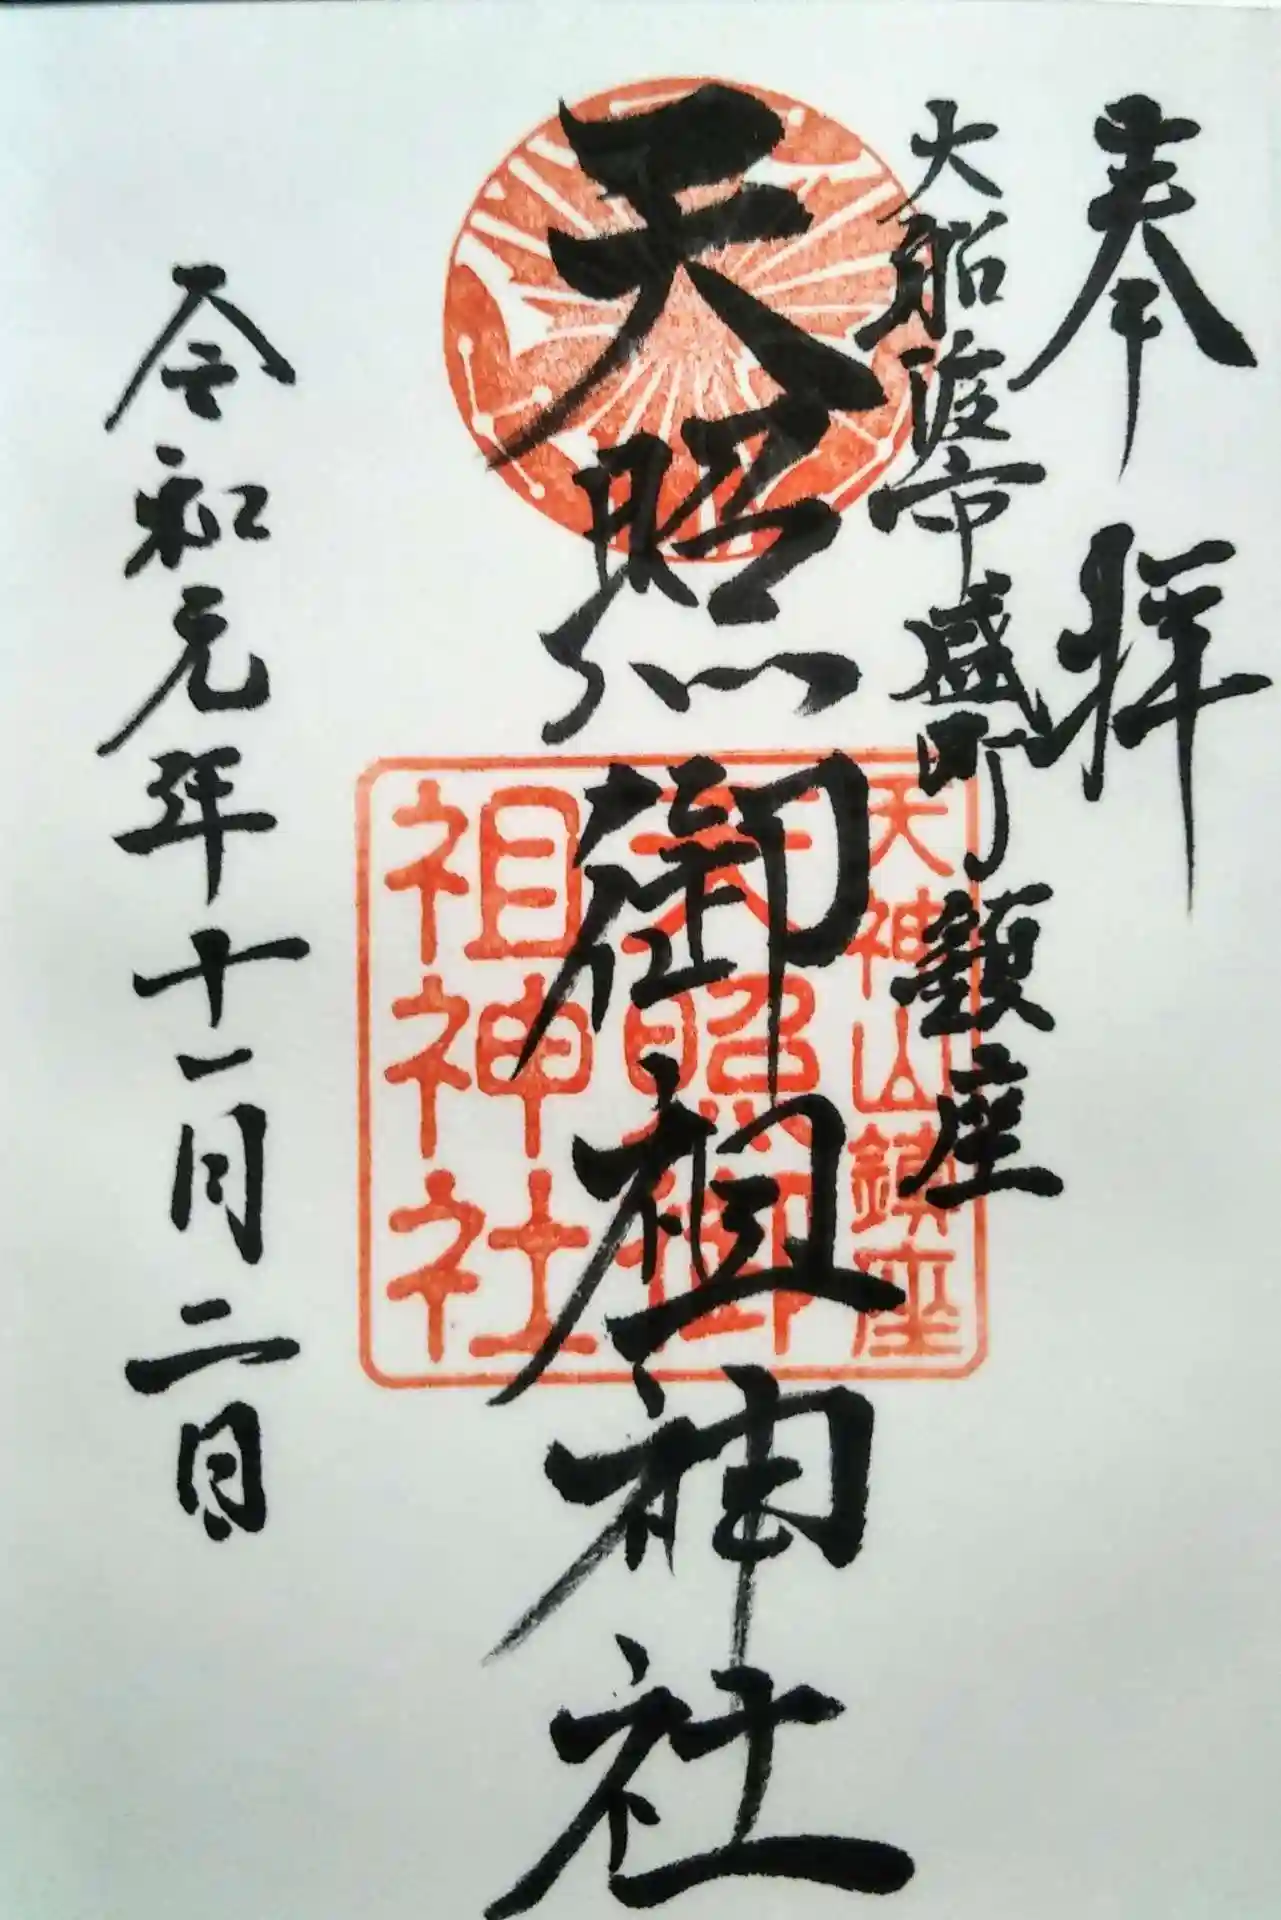 奉拝
大船渡市盛町鎮座
天照御祖神社
天神山鎮座
天照御
祖神社
祖神社
令和元年十一月二日